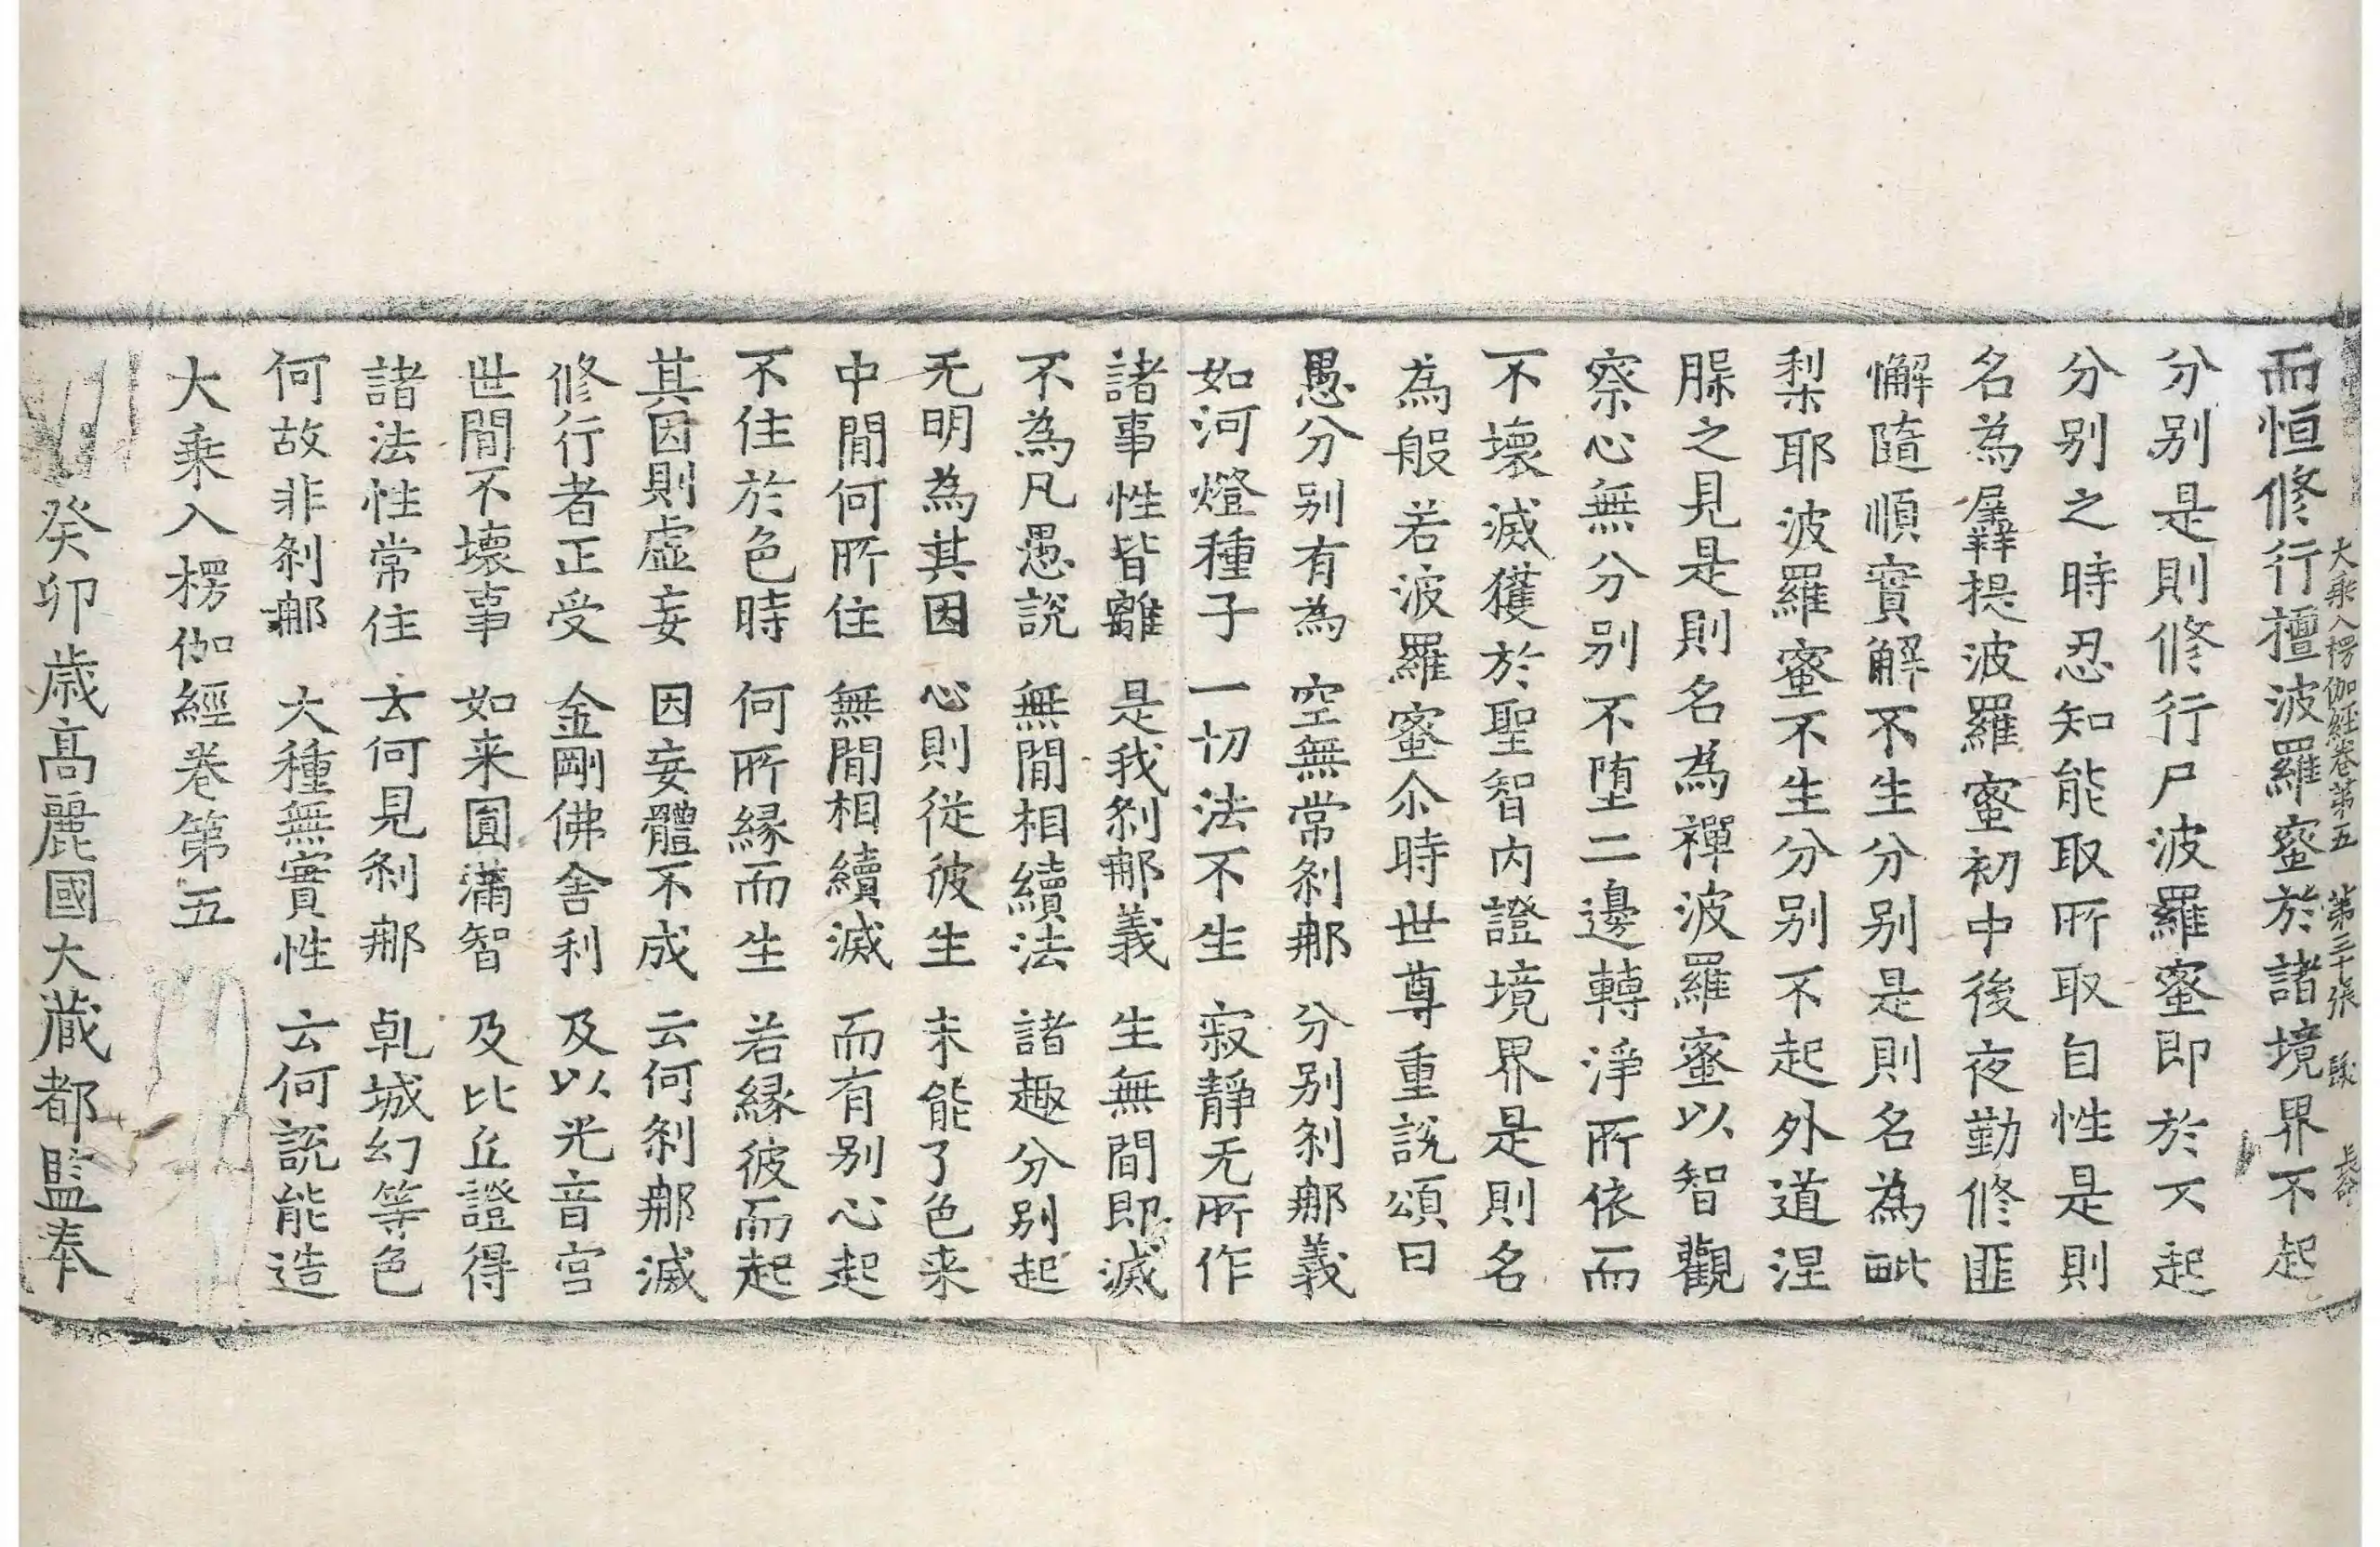 大乘入楞伽經卷第五 第三十張
而恒修行檀波羅蜜於諸境界不起
分别是則修行尸波羅蜜即於不起
分别之時忍知能取所取自性是則
名為羼提波羅蜜初中後夜勤修匪
懈隨順實解不生分别是則名為毗
梨耶波羅蜜不生分别不起外道涅
槃之見是則名為禪波羅蜜以智觀
察心無分别不墮二邊轉淨所依而
不壞滅獲於聖智內證境界是則名
為般若波羅蜜尒時世尊重說頌曰
愚分别有為 空無常剎那 分别剎那義
如河燈種子 一切法不生 寂靜无所作
諸事性皆離 是我剎那義 生無間即滅
不為凡愚說 無間相續法 諸趣分别起
无明為其因 心則從彼生 未能了色来
中間何所住 無間相續滅 而有别心起
不住於色時 何所縁而生 若縁彼而起
其因則虛妄 因妄體不成 云何剎那滅
修行者正受 金剛佛舍利 及以光音宮
世間不壞事 如来圓滿智 及比丘證得
諸法性常住 云何見剎那 乹城幻等色
何故非剎那 大種無實性 云何說能造
大乘入楞伽經卷第五
癸卯歳髙麗國大蔵都監奉